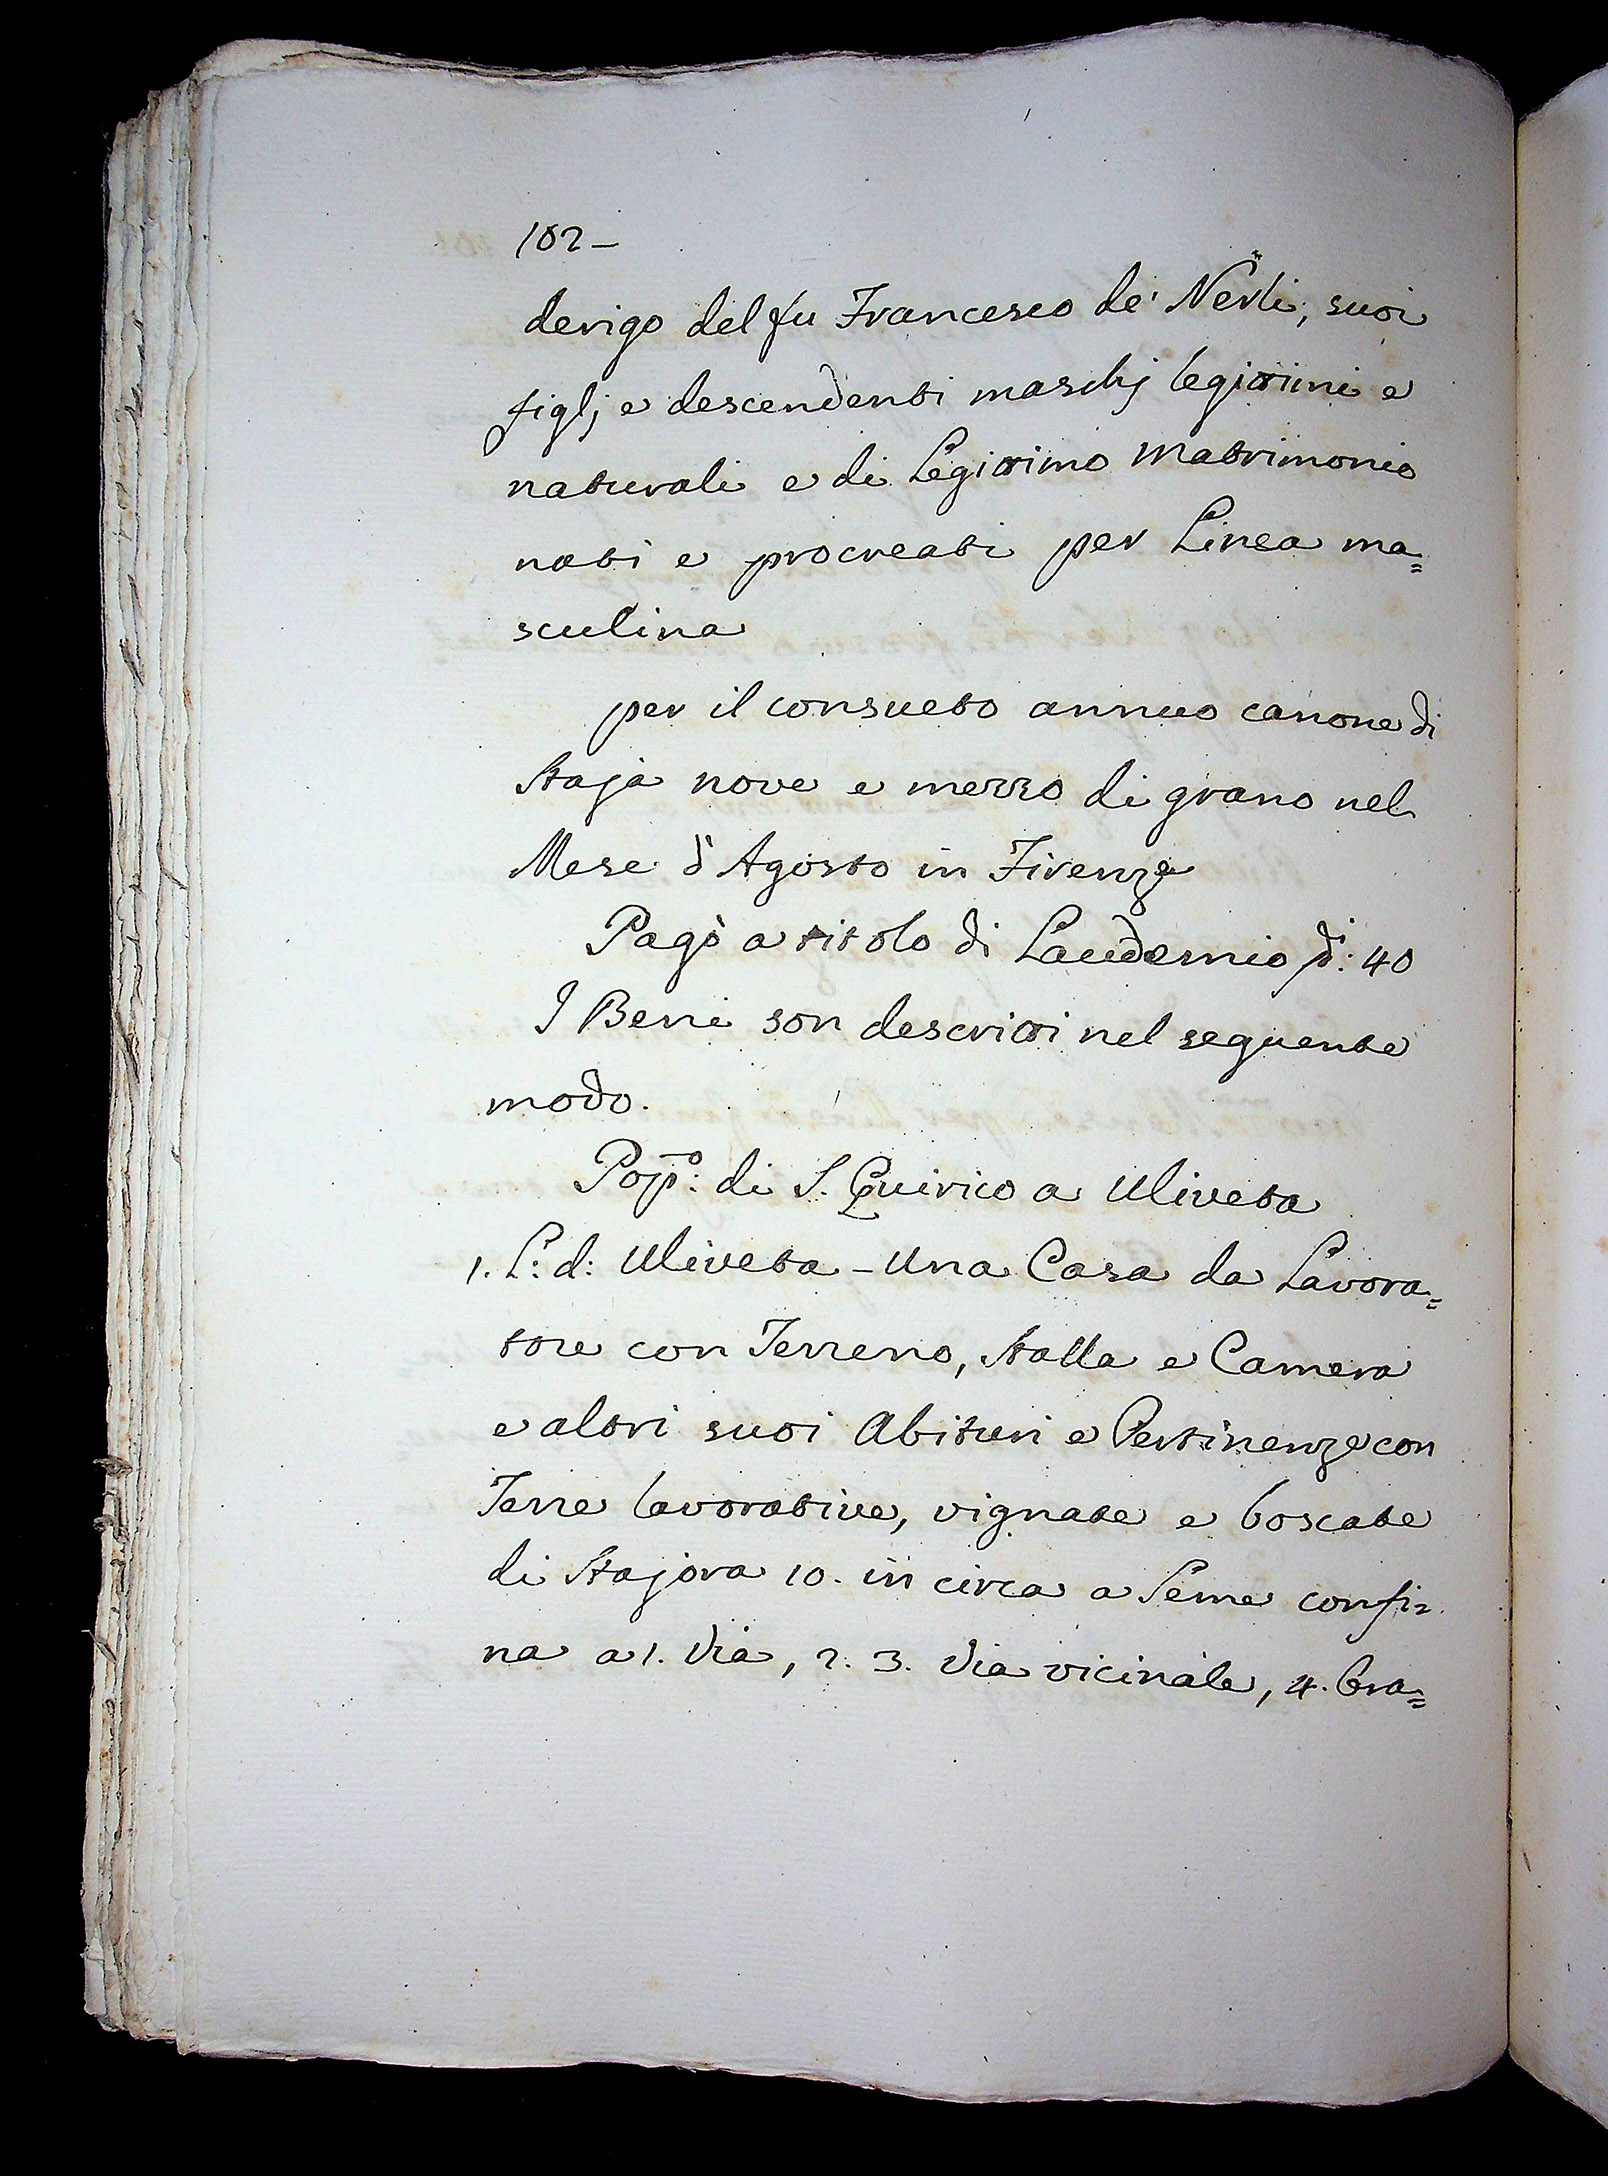 102-
derigo del fu Francesco de' Nerli, suoi
figlj e descendenti maschj legittimi e
naturali e di Legittimo Matrimonio
nati e procreati per Linea ma=
sculina
per il consueto annuo canone di
Staja nove e mezzo di grano nel
Mese d'Agosto in Firenze
Pagò a titolo di Laudemio 40
I Beni son descritti nel seguente
modo.
Popo: di S. Quirico a Uliveta
1. L: d: Uliveta - Una Casa da Lavora=
tore con Terreno, Stalla e Camera
e altri suoi Abituri e Pertinenze con
Terre lavorative, vignate e boscate
di Stajora 10. in circa a Seme confi=
na a 1. Via, 2. 3. Via vicinale, 4.